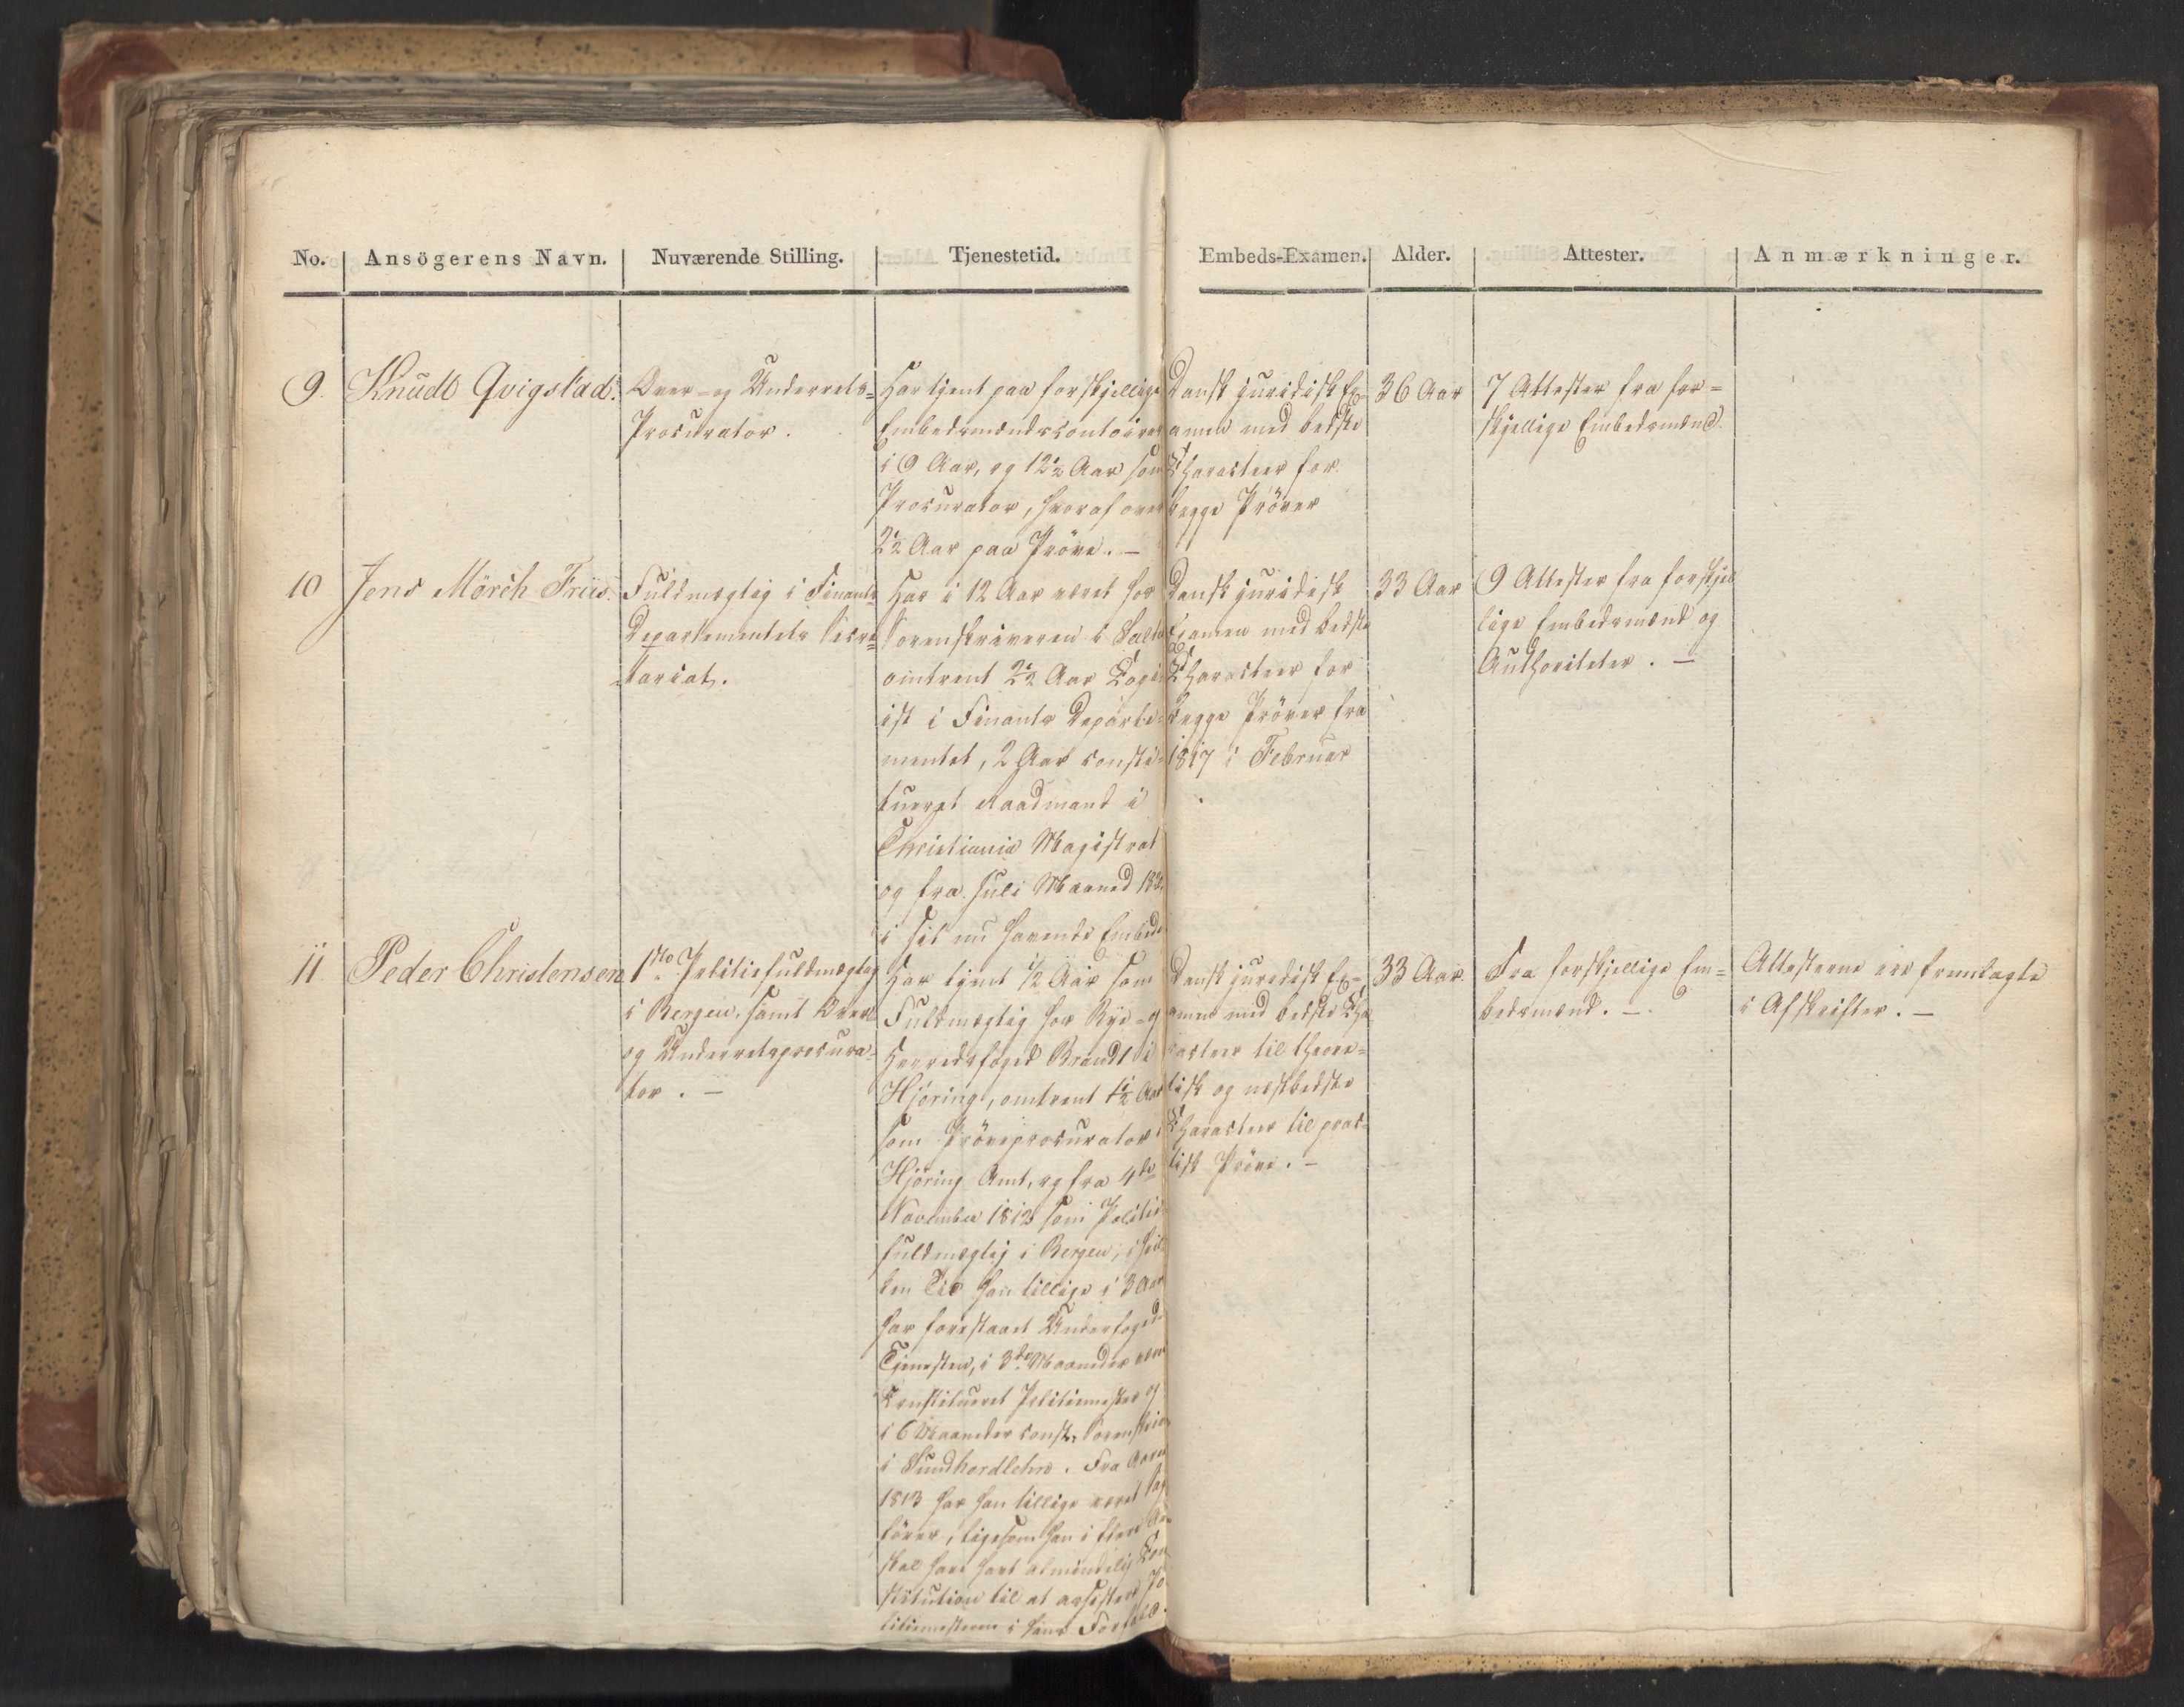 No. Ansögerens Navn. Nuværende Stilling. Tjenestetid. Embeds-Examen. Alder. Attester. Anmærkninger.
9. Knudt Qvigstad.
Over- og Underrets-
Procurator.
Har tjent paa forskjellige
Embedsmændscontoirer
i 9 Aar, og 12½ Aar som
Procurator, hvoraf over
2½ Aar paa Prøve. –
Dansk juridisk Ex-
amen med bedste
Characteer for
begge Prøver
36 Aar
7 Attester fra for-
skjellige Embedsmænd.
10 Jens Mörch Friis.
Fuldmægtig i Finants
Departementets Secre-
tariat.
Har i 12 Aar været hos
Sorenskriveren i Salten
omtrent 2½ Aar Copi-
ist i Finants Departe-
mentet, 2 Aar consti-
tueret Raadmand i
Christiania Magistrat
og fra Juli Maaned
i sit nu havende Embede
Dansk juridisk
Examen med bedste
Characteer for
begge Prøver fra
1817 i Februar
33 Aar
9 Attester fra forskjel
lige Embedsmænd og
Authoriteter. –
11 Peder Christensen
1ste Politiefuldmægtig
i Bergen, samt Over-
og Underretsprocura-
tor. –
Har tjent ½ Aar som
Fuldmægtig hos Bye- og
Herredsfoged Brandt i
Hjøring, omtrent 1½ Aar
som Prøveprocurator i
Hjøring Amt, og fra 4de
November 1812 som Politie
fuldmægtig i Bergen, i hvil
ken Tid han tillige i 3 Aar
har forestaaet Underfoged
Tjenesten, i 3de Maaneder være
Constitueret Politiemester og
i 6 Maaneder const. Sorenskriv
i Sundhordlehn. Fra Aaret
1813 har han tillige været Sag
fører, ligesom han i flere Aar
skal have havt almindelig Con
stitution til at assistere Po
litiemesteren i hans Forfald.
Dansk juridisk Ex-
amen med bedste Cha
racteer til theore-
tisk og næstbedste
Characteer til prac-
tisk Prøve. –
33 Aar.
Fra forskjellige Em-
bedsmænd. –
Attesterne ere fremlagte
i Afskrifter. –